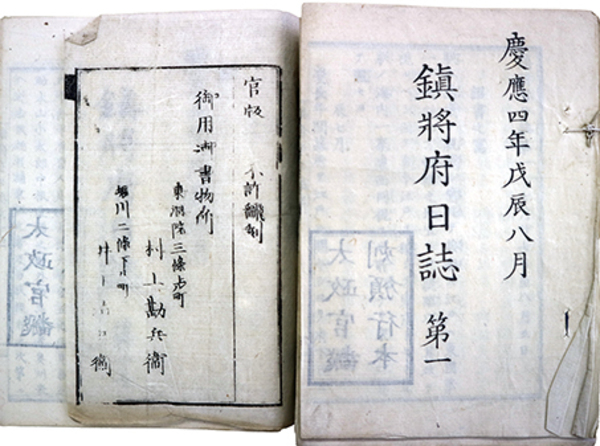 慶應四年戊辰八月
鎮將府日誌 第一
刻頒行本
太政官
官版 不許翻刻
御用御書物所
東洞院三條上町
村上勘兵衞
堀川二條下ル町
井上 衞
太政官